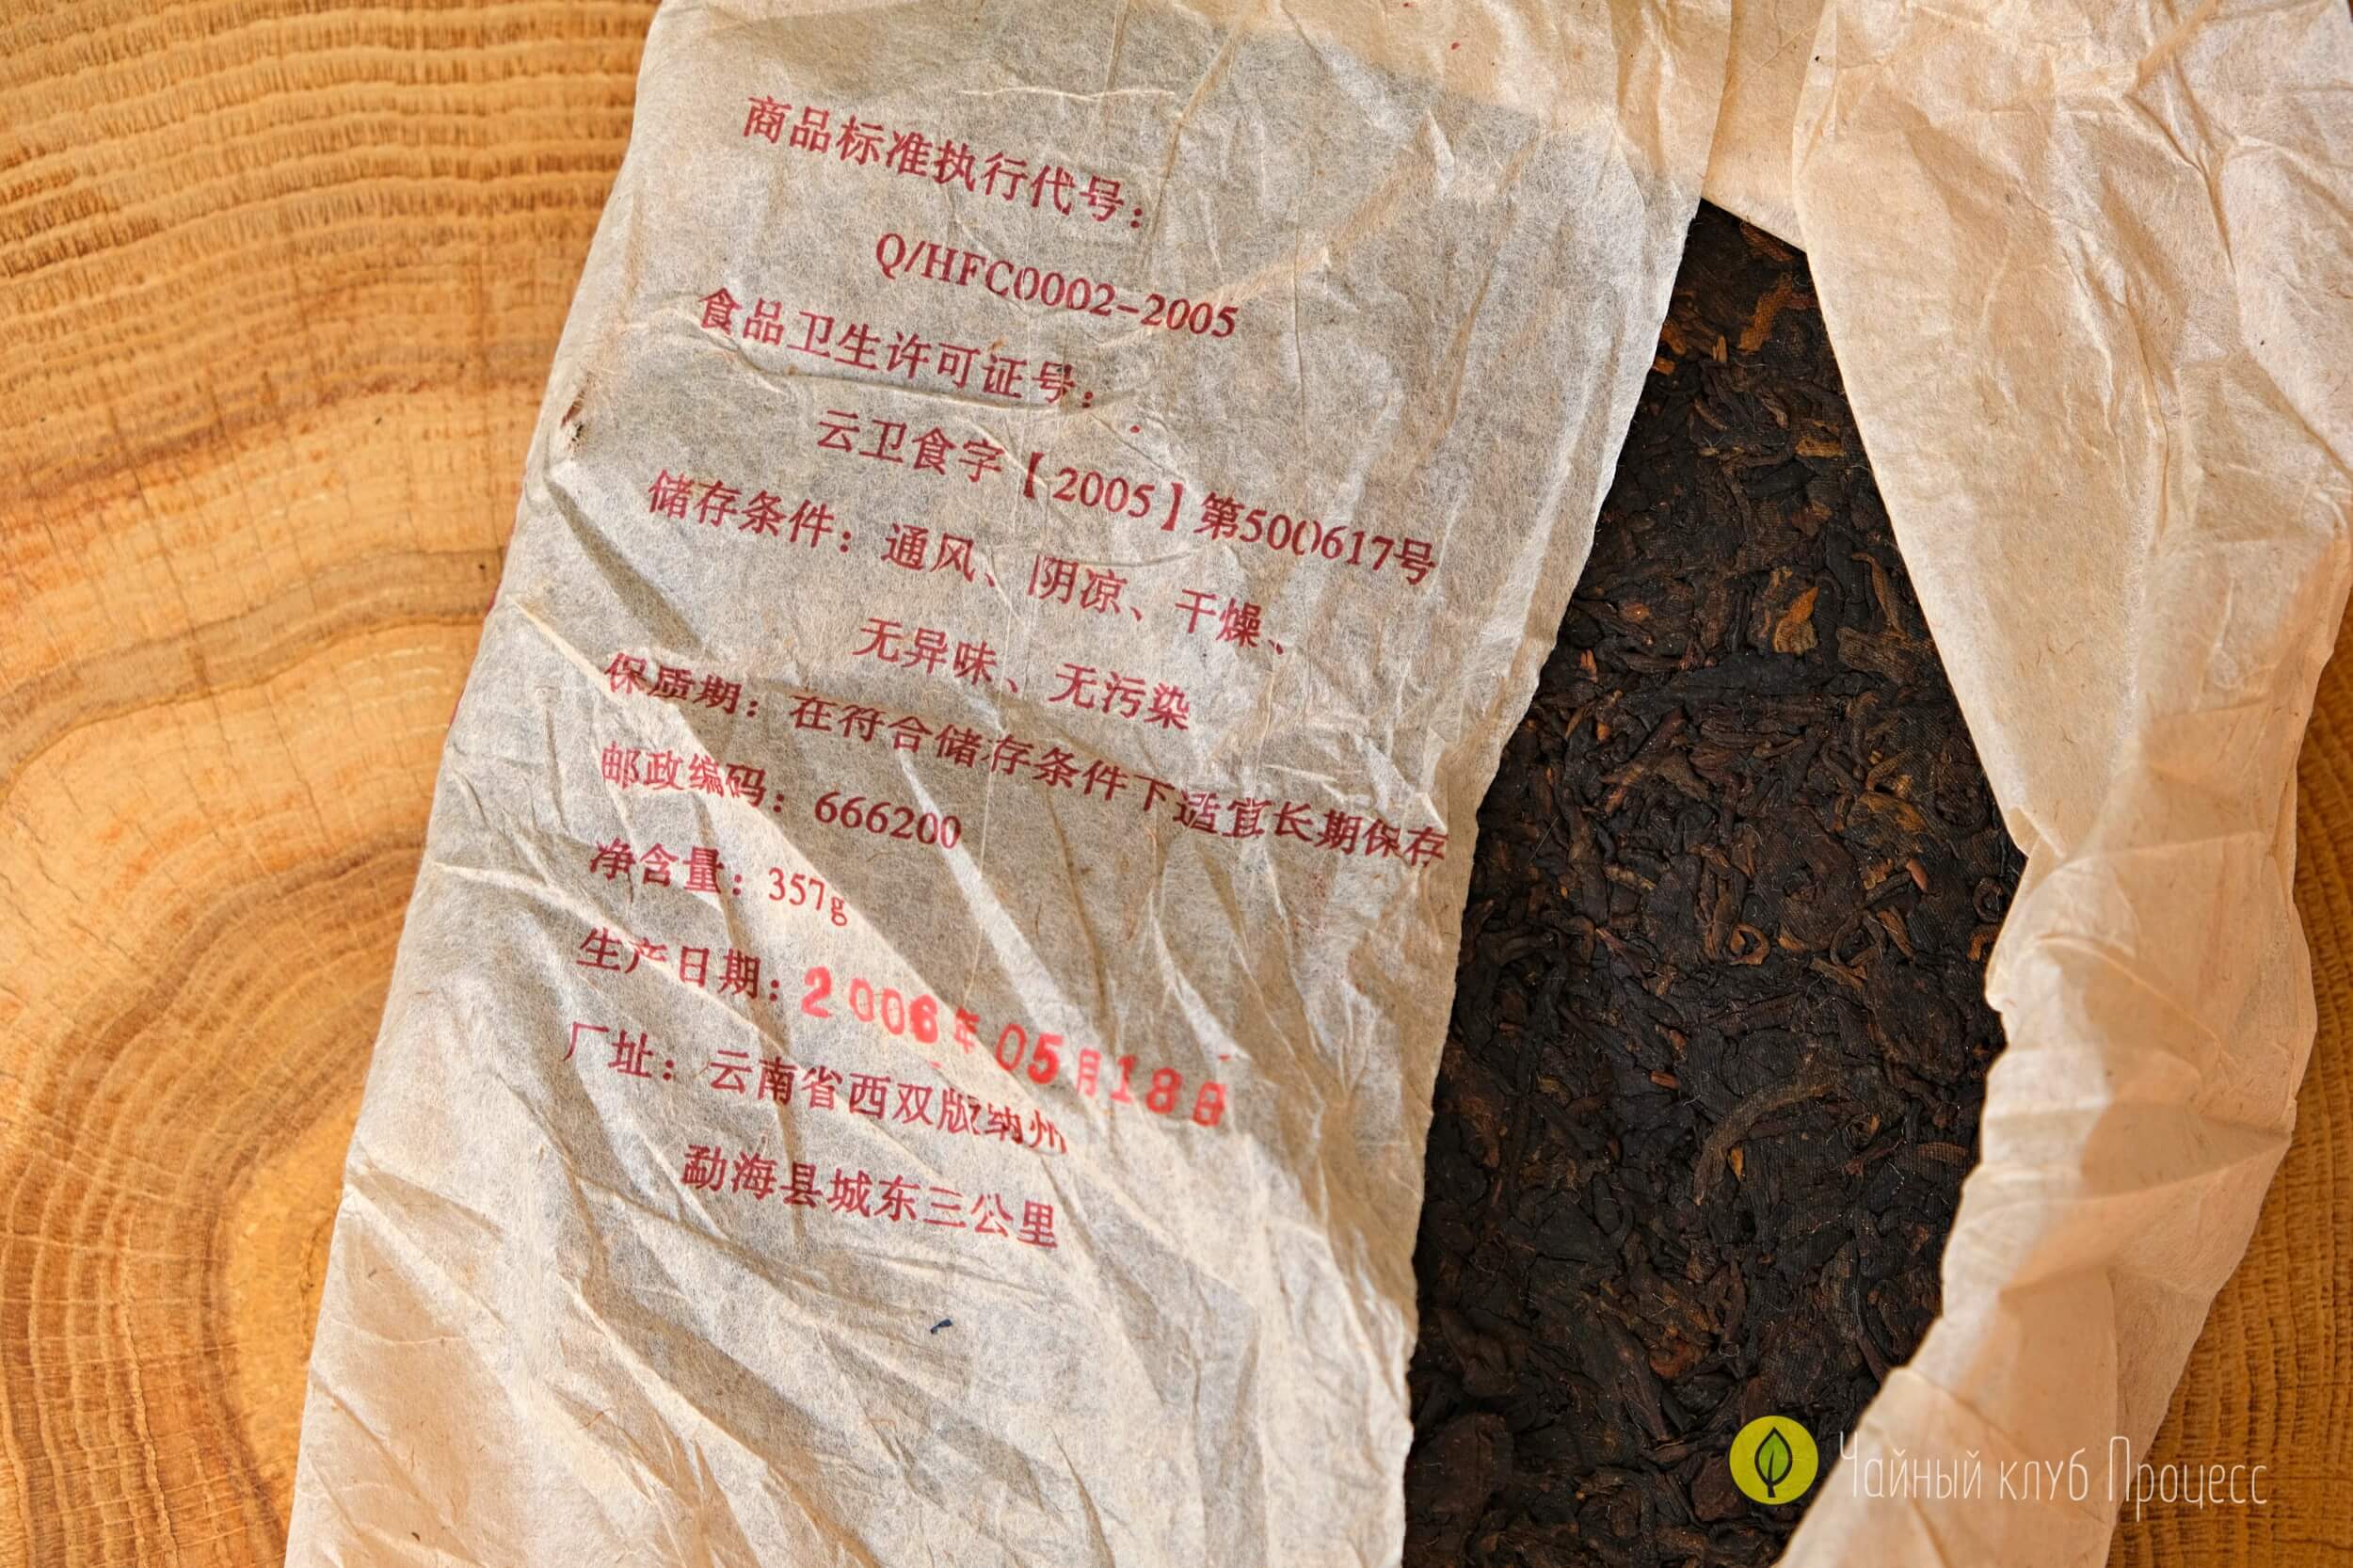 商品标准执行代号：
Q/HFC0002-2005
食品卫生许可证号：
云卫食字【2005】第500617号
储存条件：通风、阴凉、干燥、
无异味、无污染
保质期：在符合储存条件下适宜长期保存
邮政编码：666200
净含量：357g
生产日期：2006年05月18日
厂址：云南省西双版纳州
勐海县城东三公里
Чайный клуб Процесс